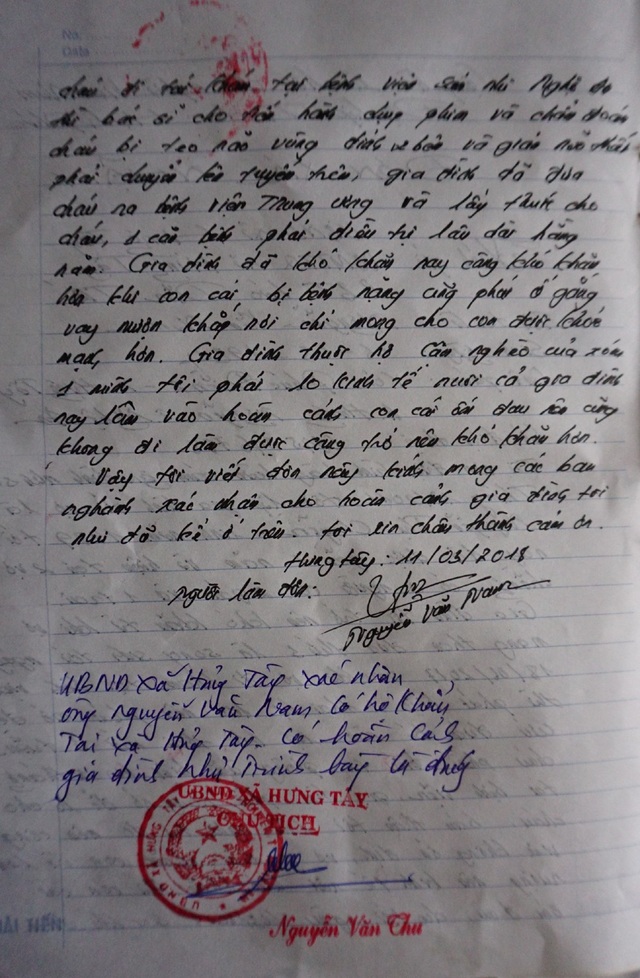 No.
Date
cháu đi tái khám tại bệnh viện sản nhi Nghệ An
thì bác sĩ cho tiến hành chụp phim và chẩn đoán
cháu bị teo não vùng đỉnh 2 bên và giãn não thất
phải chuyển lên tuyến trên, gia đình đã đưa
cháu ra bệnh viện Trung ương và lấy thuốc cho
cháu, 1 căn bệnh phải điều trị lâu dài hằng
năm. Gia đình đã khó khăn nay càng khó khăn
hơn khi con cái bị bệnh nặng cũng phải cố gắng
vay mượn khắp nơi chỉ mong cho con được khỏe
mạnh hơn. Gia đình thuộc hộ cận nghèo của xóm
1 mình tôi phải lo kinh tế nuôi cả gia đình
nay lâm vào hoàn cảnh con cái ốm đau nên cũng
không đi làm được càng trở nên khó khăn hơn.
Vậy tôi viết đơn này kính mong các ban
nghành xác nhận cho hoàn cảnh gia đình tôi
như đã kể ở trên. tôi xin chân thành cảm ơn.
Hưng tây: 11/03/2018
Người làm đơn:
Nguyễn Văn Nam
UBND xã Hưng Tây xác nhận
ông Nguyễn Văn Nam có hộ khẩu
Tại xã Hưng Tây. Có hoàn cảnh
gia đình như trình bày là đúng
UBND XÃ HƯNG TÂY
CHỦ TỊCH
Nguyễn Văn Thu